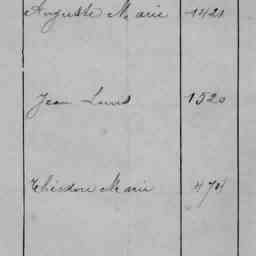 Auguste Marie 1421
Jean Louis 1520
Théodore Marie 474